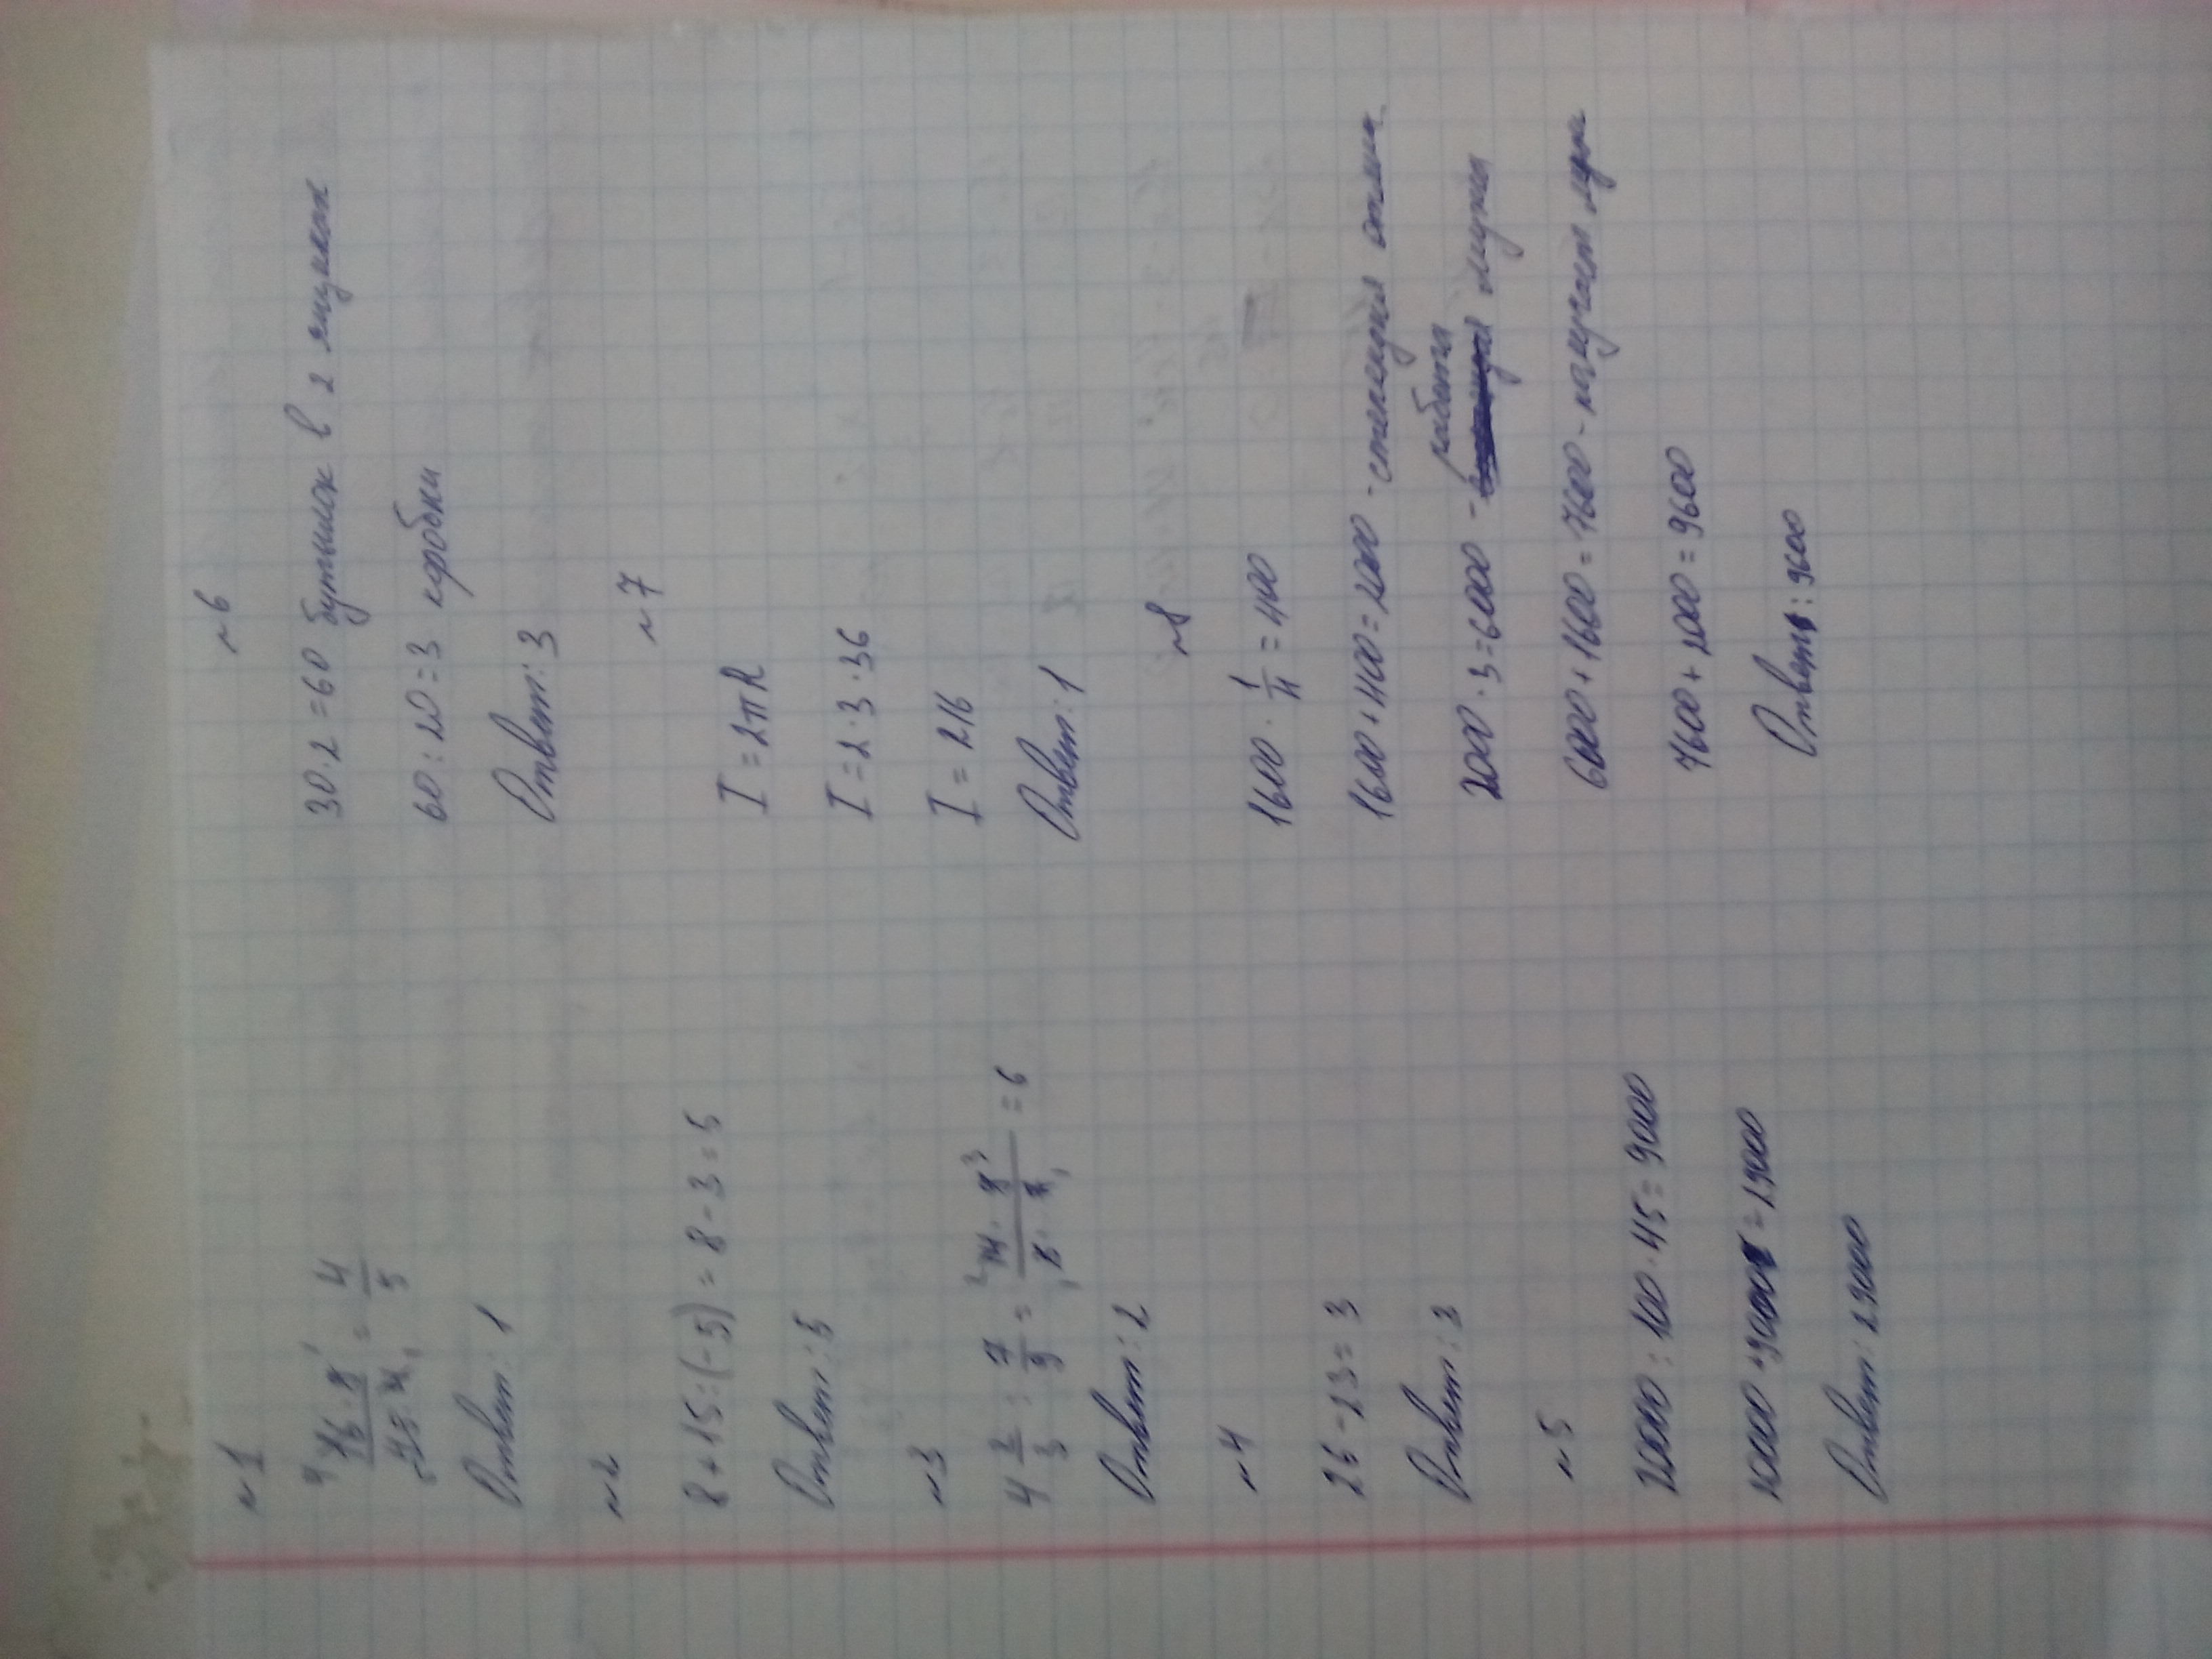 №1
16·9/45·4=4/5
Ответ: 1
№2
8+15:(-5)=8-3=5
Ответ: 5
№3
4 2/3 : 7/9 = 14·9/3·7 = 6
Ответ: 2
№4
26-23=3
Ответ: 3
№5
20000:100·45=9000
20000+9000=29000
Ответ: 29000
№6
30·2=60 бутылок в 2 ящиках
60:20=3 коробки
Ответ: 3
№7
I=2πR
I=2·3·36
I=216
Ответ: 1
№8
1600·1/4=400
1600+400=2000 - стипендия отлич.
работа
2000·3=6000 - мужа
6000+1600=7600 - получает муж
7600+2000=9600
Ответ: 9600